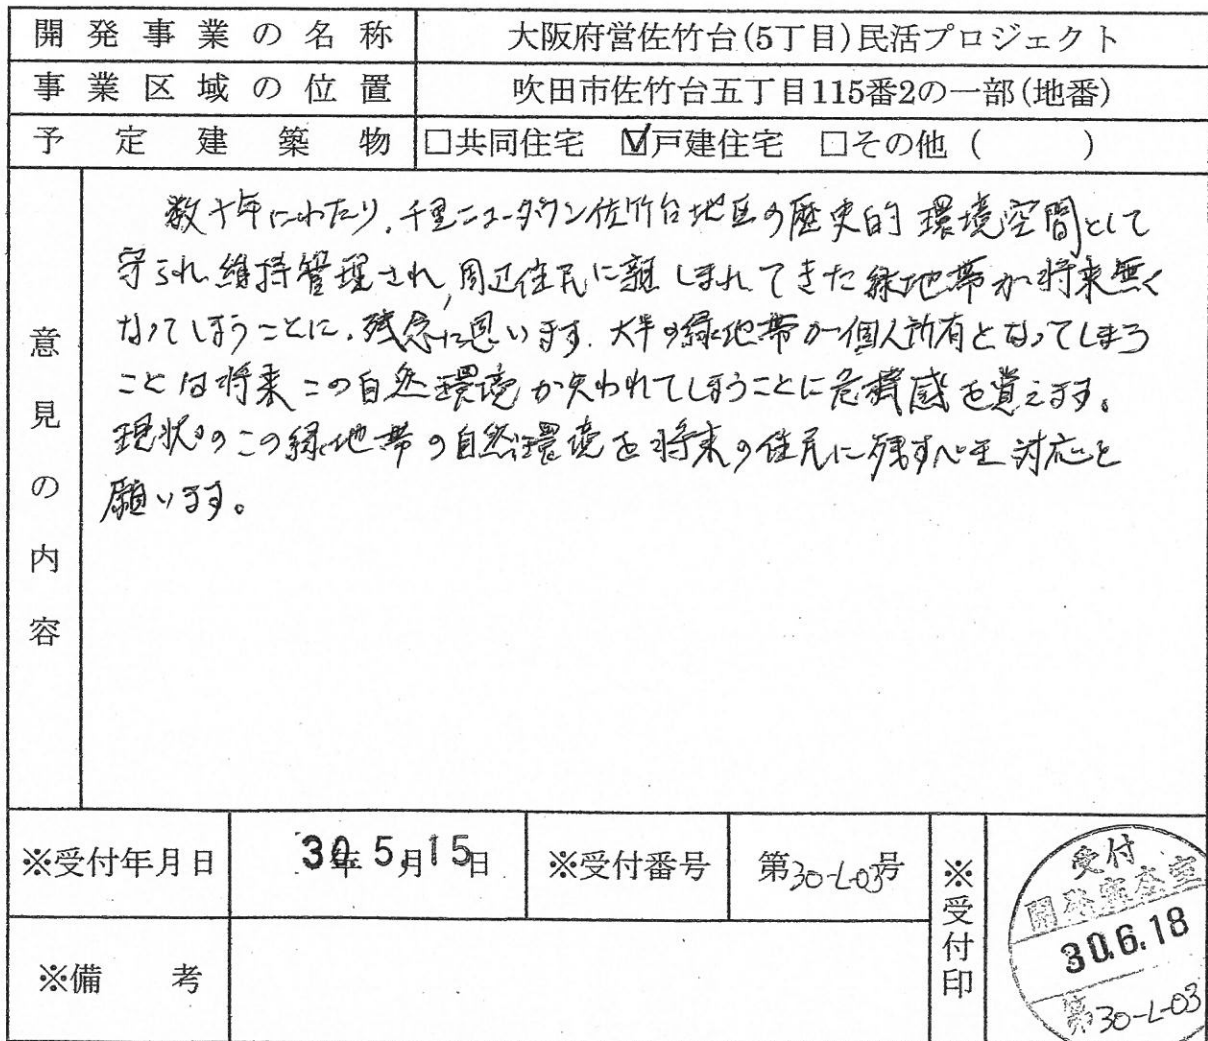 開発事業の名称 大阪府営佐竹台(5丁目)民活プロジェクト
事業区域の位置 吹田市佐竹台五丁目115番2の一部(地番)
予定建築物 □共同住宅 ☑戸建住宅 □その他 ( )
意見の内容
数十年にわたり、千里ニュータウン佐竹台地区の歴史的環境空間として
守られ、維持管理され、周辺住民に親しまれてきた緑地帯が将来無く
なってしまうことに、残念に思います。大半の緑地帯が個人所有となってしまう
ことは将来この自然環境が失われてしまうことに危機感を覚えます。
現状のこの緑地帯の自然環境を将来の住民に残すべき対応を
願います。
※受付年月日 30年5月15日 ※受付番号 第30-L-03号 ※受付印
受付
開発審査室
30.6.18
第30-L-03
※備考